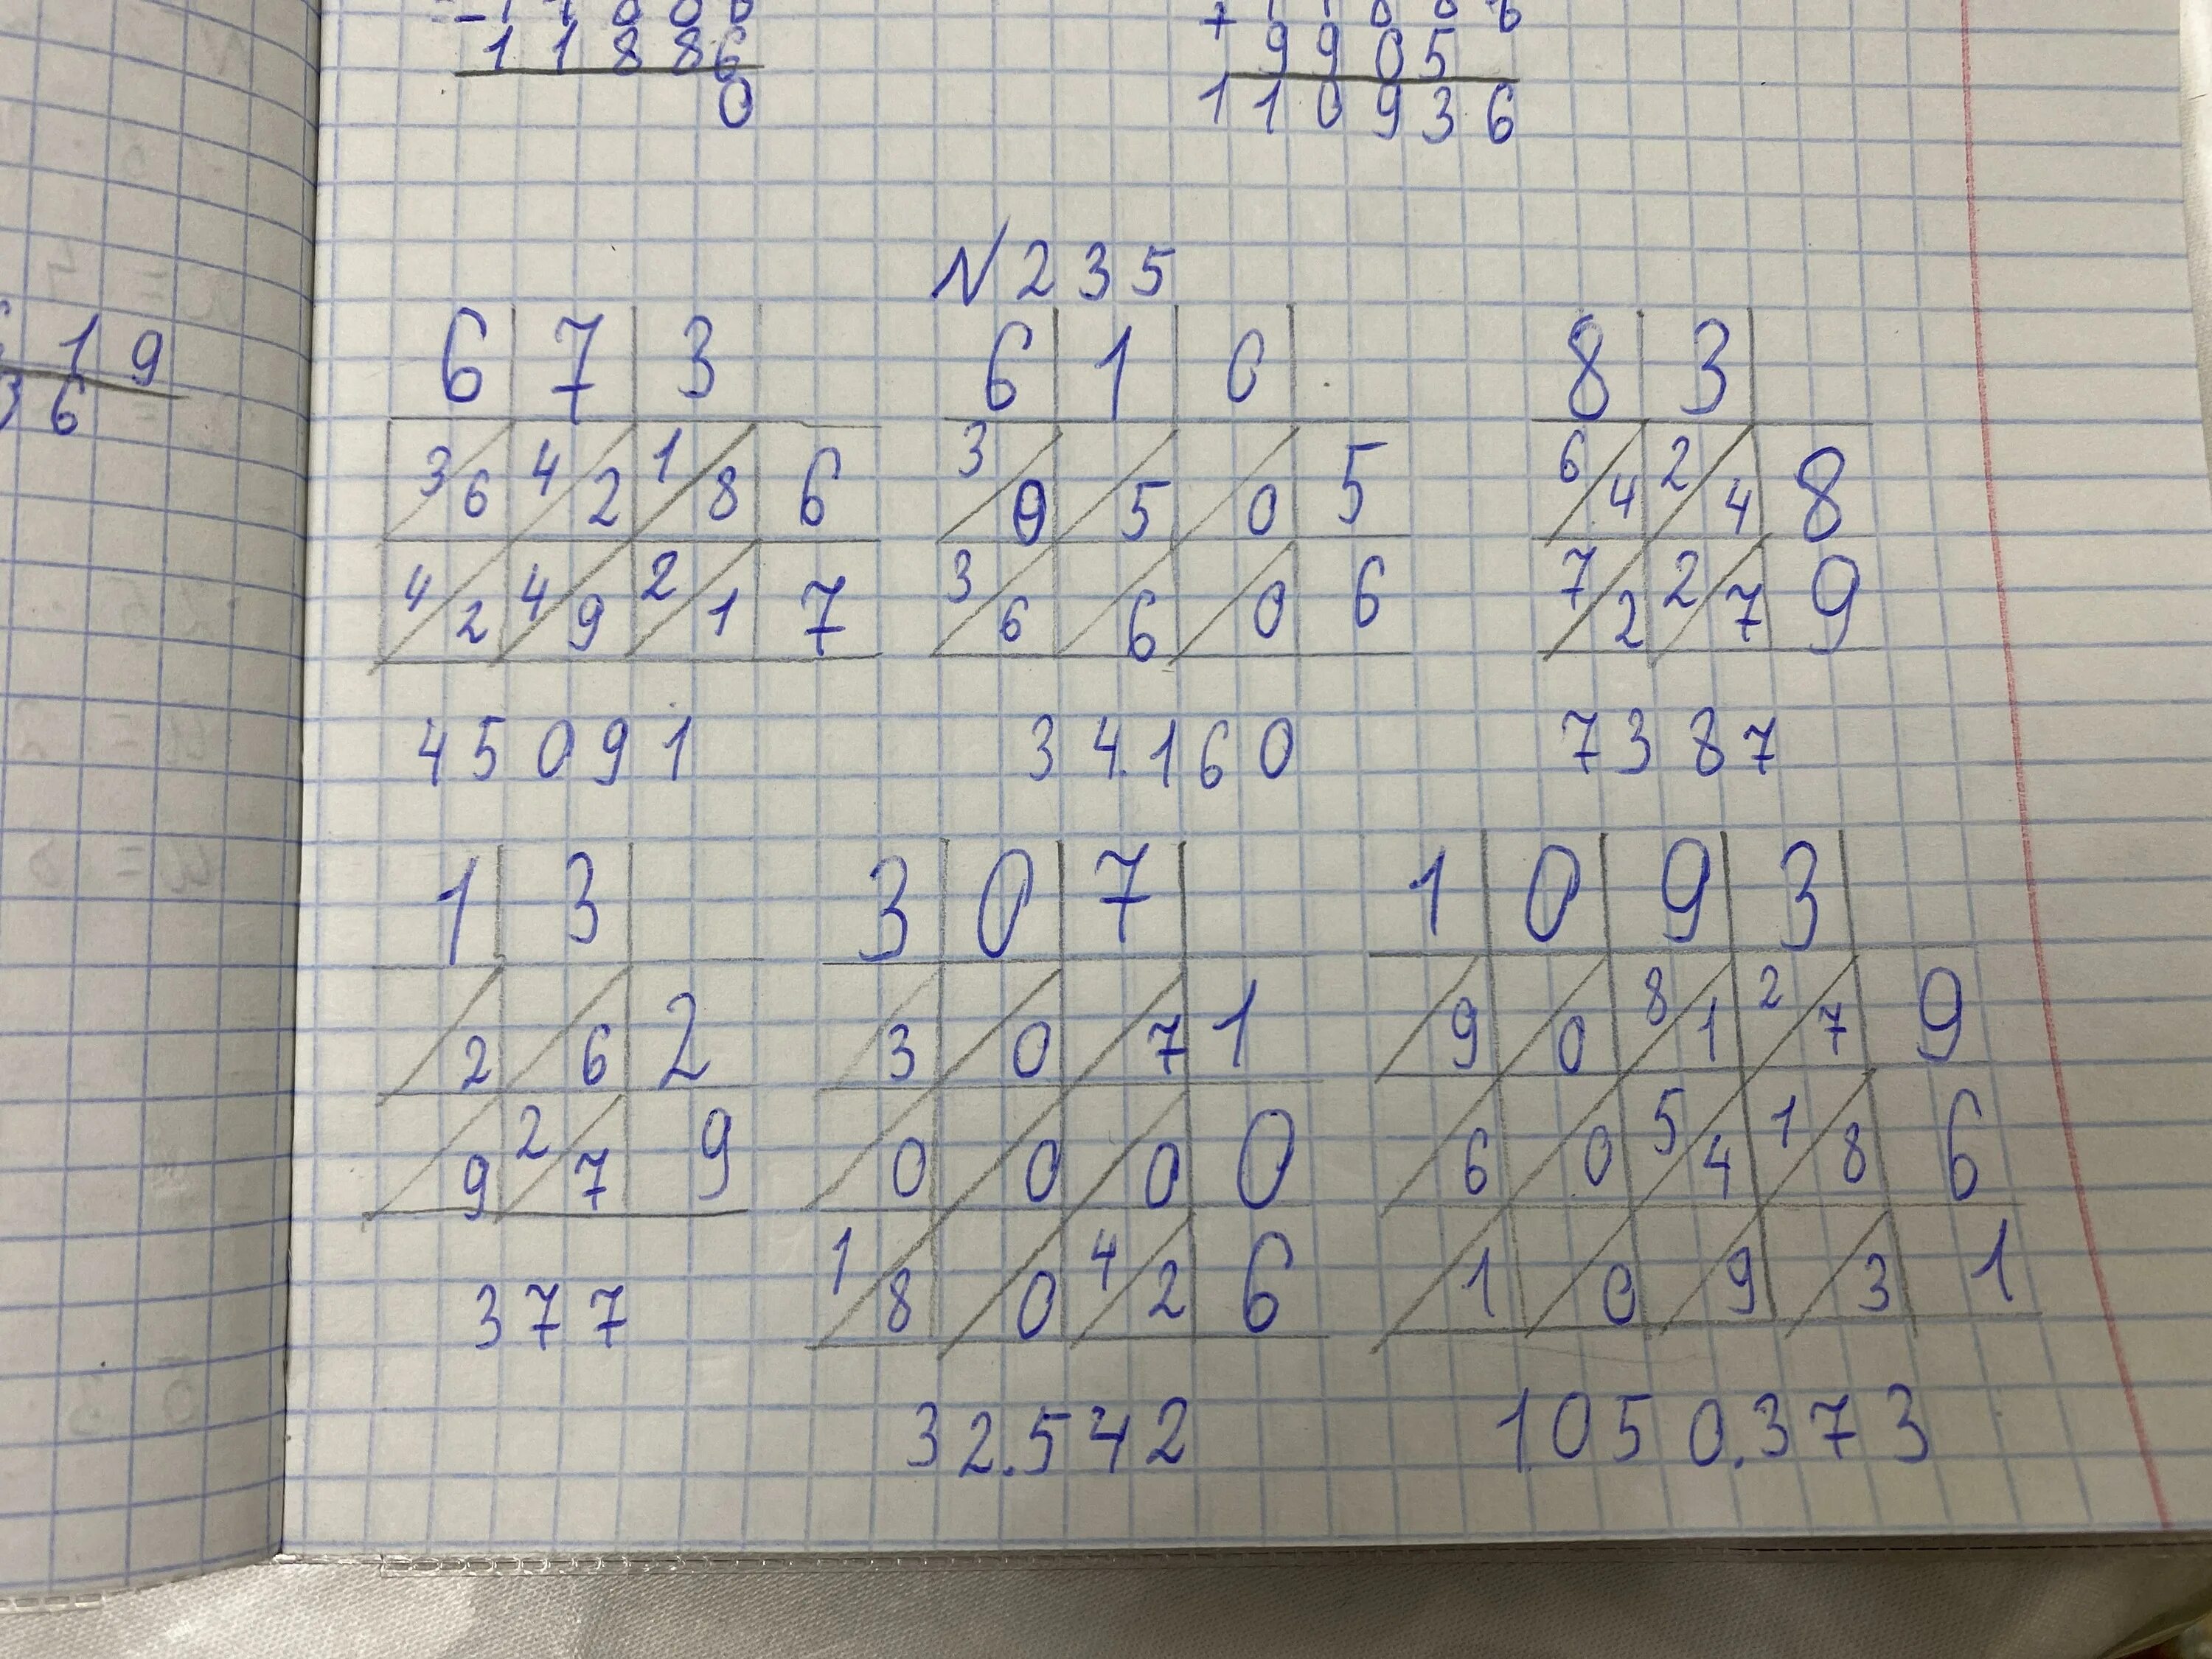 11886
0
+ 9905
110936
19
36
N235
6 7 3
3 6 4 2 1 8 6
4 2 4 9 2 1 7
45091
6 1 0
3 0 5 0 5
3 6 6 0 6
34.160
8 3
6 4 2 4 8
7 2 2 7 9
7387
1 3
2 6 2
9 2 7 9
377
3 0 7
3 0 7 1
0 0 0 0
1 8 0 4 2 6
32.542
1 0 9 3
9 0 8 1 2 7 9
6 0 5 4 1 8 6
1 0 9 3 1
1.050.373